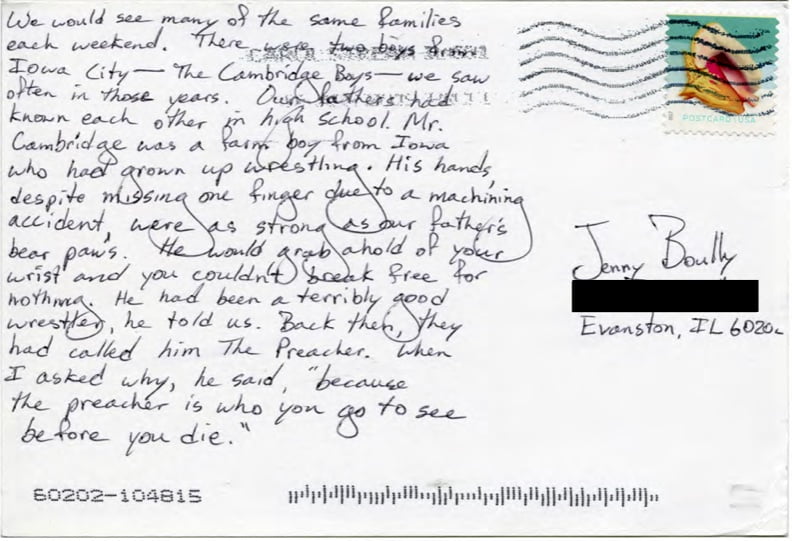 We would see many of the same families
each weekend. There were two boys from
Iowa City — The Cambridge Boys — we saw
often in those years. Our fathers had
known each other in high school. Mr.
Cambridge was a farm boy from Iowa
who had grown up wrestling. His hands,
despite missing one finger due to a machining
accident, were as strong as our father's
bear paws. He would grab ahold of your
wrist and you couldn't break free for
nothing. He had been a terribly good
wrestler, he told us. Back then, they
had called him The Preacher. When
I asked why, he said, "because
the preacher is who you go to see
before you die."
POSTCARD USA
Jenny Boully
Evanston, IL 60202
60202-104815